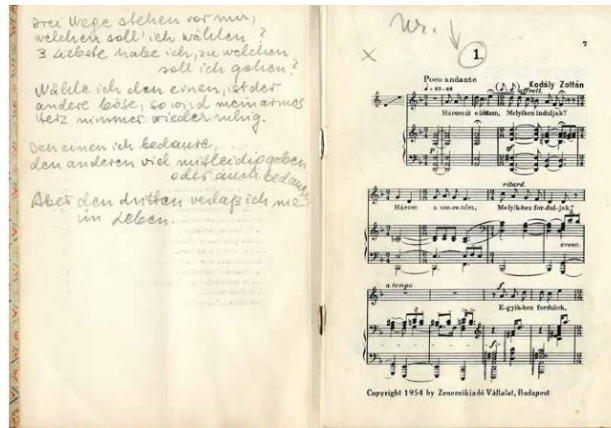 Drei Wege stehen vor mir,
welchen soll ich wählen?
3 Liebste habe ich, zu welchen
soll ich gehen?
Wähle ich den einen, ist der
andere böse, so wird mein armes
Herz nimmer wieder ruhig.
Den einen ich bedaure,
den anderen viel mitleidig geben
oder auch bedaure
Aber den dritten verlaß ich nie
im Leben.
Nr.
x
1.
7
Poco andante
Kodály Zoltán
affrett.
Három út előttem, Melyiken induljak?
p
sf
ritard.
Három a sze-re-tőm, Melyik-hez for-dul-jak?
cresc.
a tempo
f
E-gyik-hez fordulok,
f
Copyright 1954 by Zeneműkiadó Vállalat, Budapest